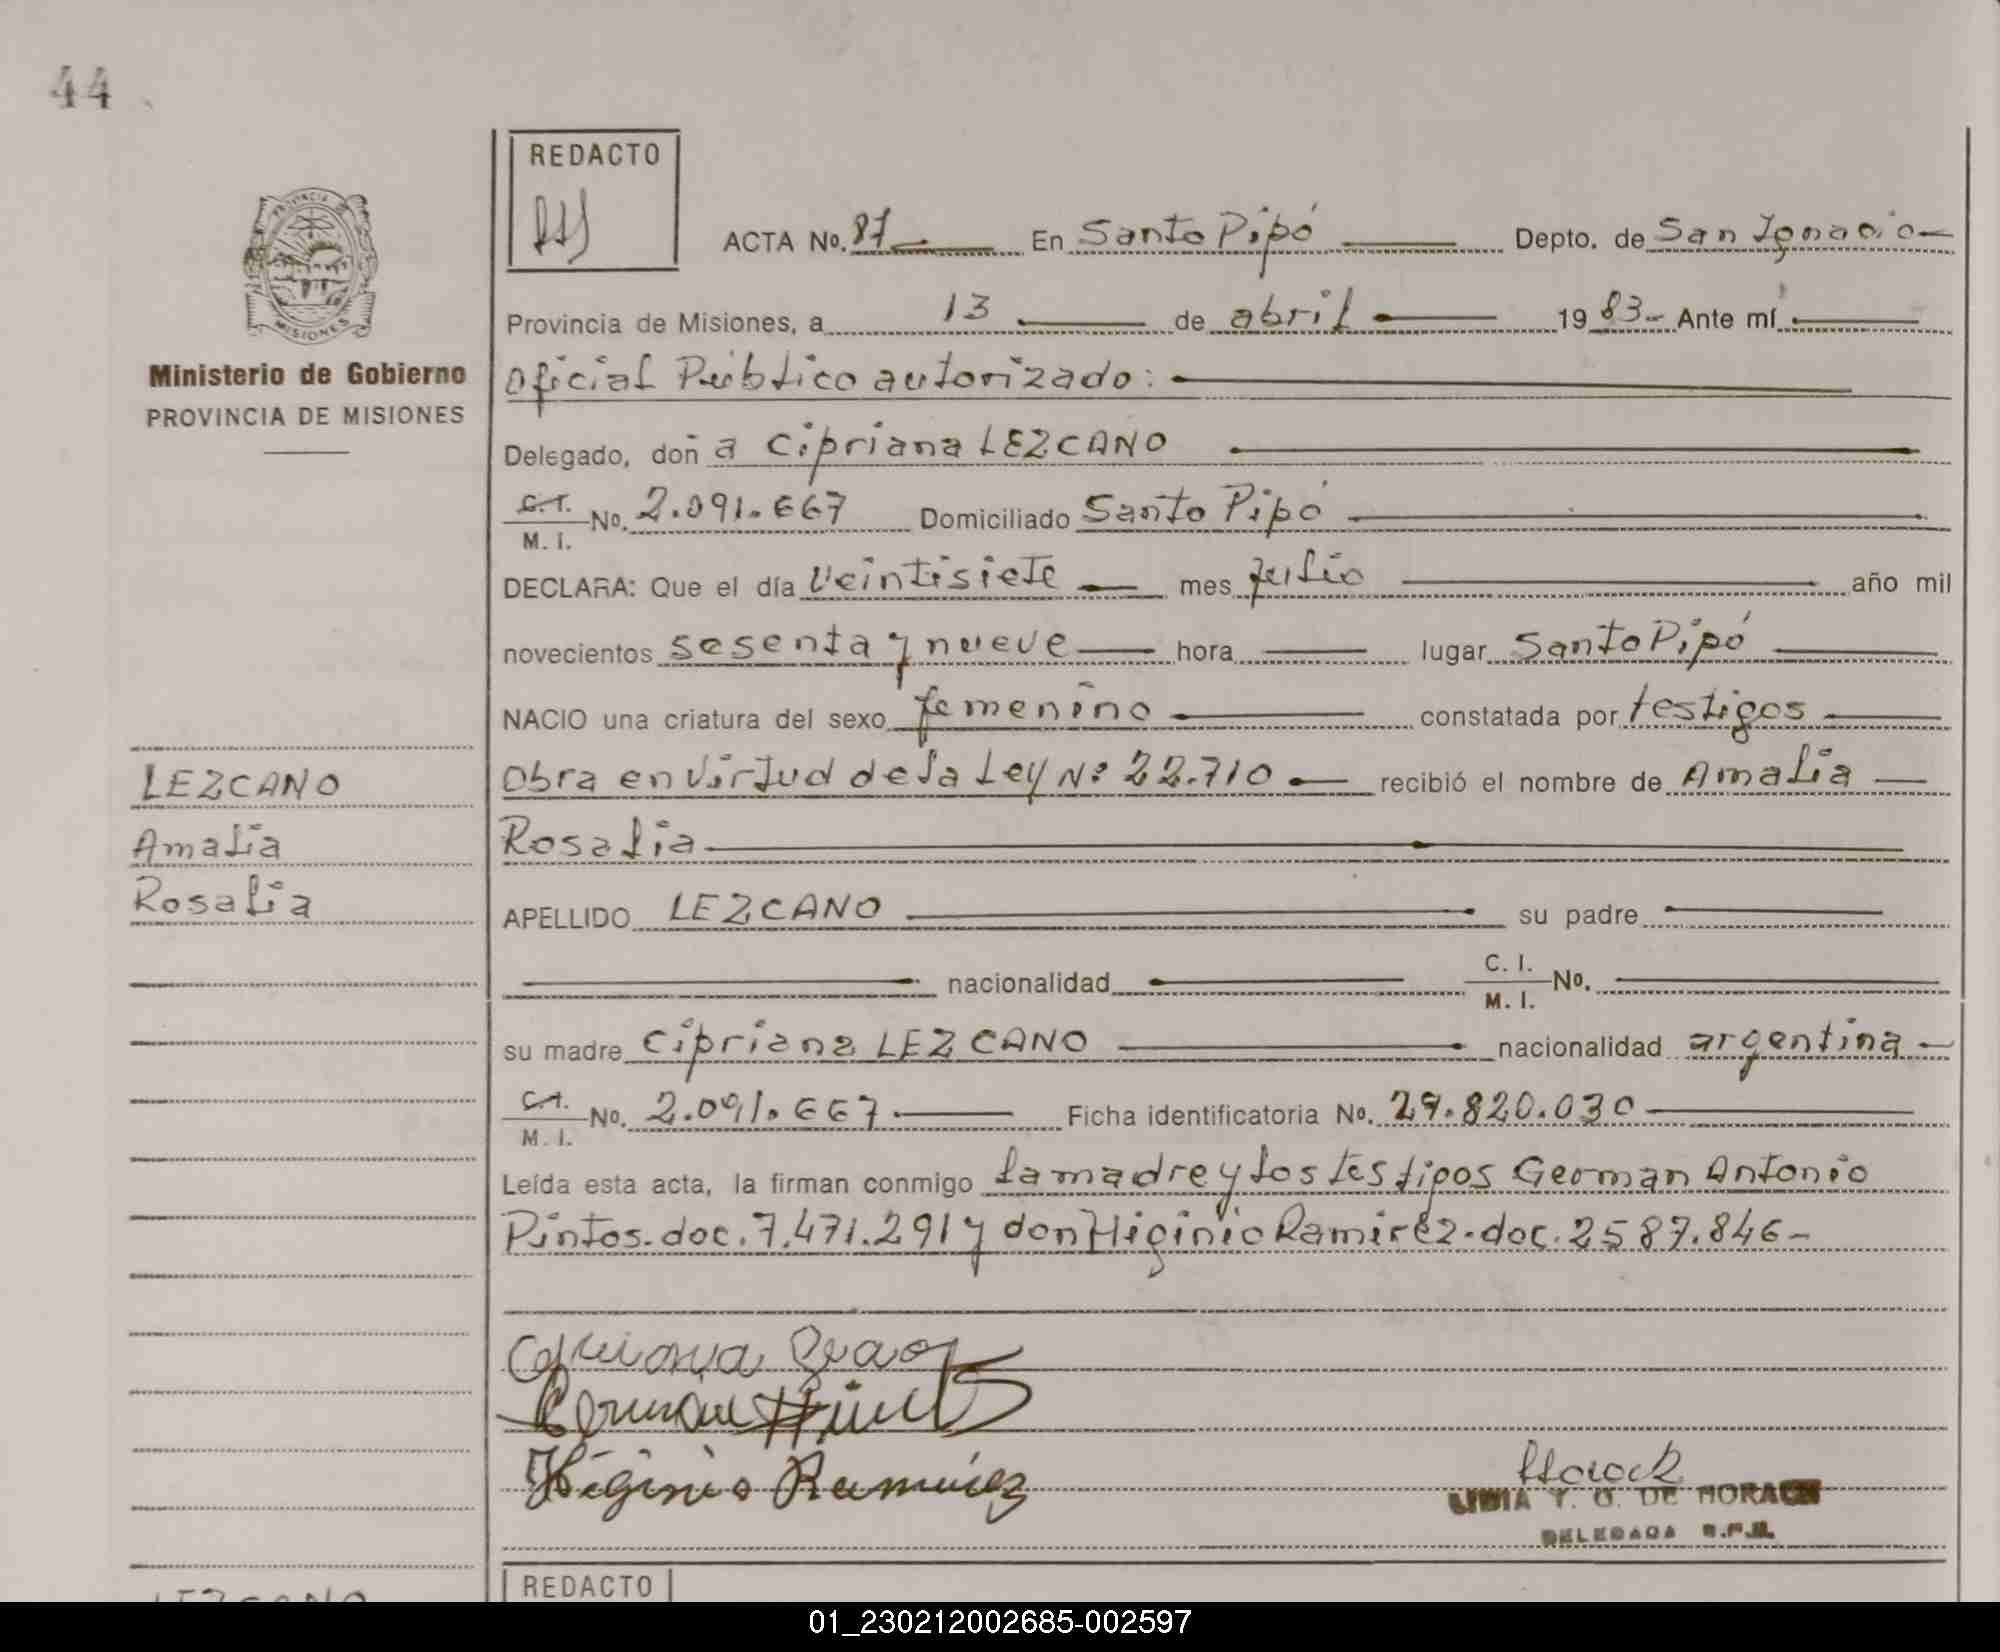 44
REDACTO
ACTA No. 87 En Santo Pipó Depto. de San Ignacio
PROVINCIA
MISIONES
Provincia de Misiones, a 13 de abril 1983- Ante mí
Ministerio de Gobierno
PROVINCIA DE MISIONES
Oficial Público autorizado:
Delegado, doña Cipriana LEZCANO
C.I.
M. I. No. 2.091.667 Domiciliado Santo Pipó
DECLARA: Que el día veintisiete mes julio año mil
novecientos sesenta y nueve hora lugar Santo Pipó
NACIO una criatura del sexo femenino constatada por testigos
LEZCANO
Amalia
Rosalia
Obra en virtud de la Ley Nº 22.710 recibió el nombre de Amalia
Rosalia
APELLIDO LEZCANO su padre
nacionalidad C. I.
M. I. No.
su madre Cipriana LEZCANO nacionalidad argentina
C.I.
M. I. No. 2.091.667 Ficha identificatoria No. 29.820.030
Leída esta acta, la firman conmigo la madre y los testigos German Antonio
Pintos-doc. 7.471.291 y don Higinio Ramirez-doc. 2587.846-
Higinio Ramirez
LIDIA Y. O. DE HORACK
DELEGADA R.P.
REDACTO
LEZCANO
01_230212002685-002597